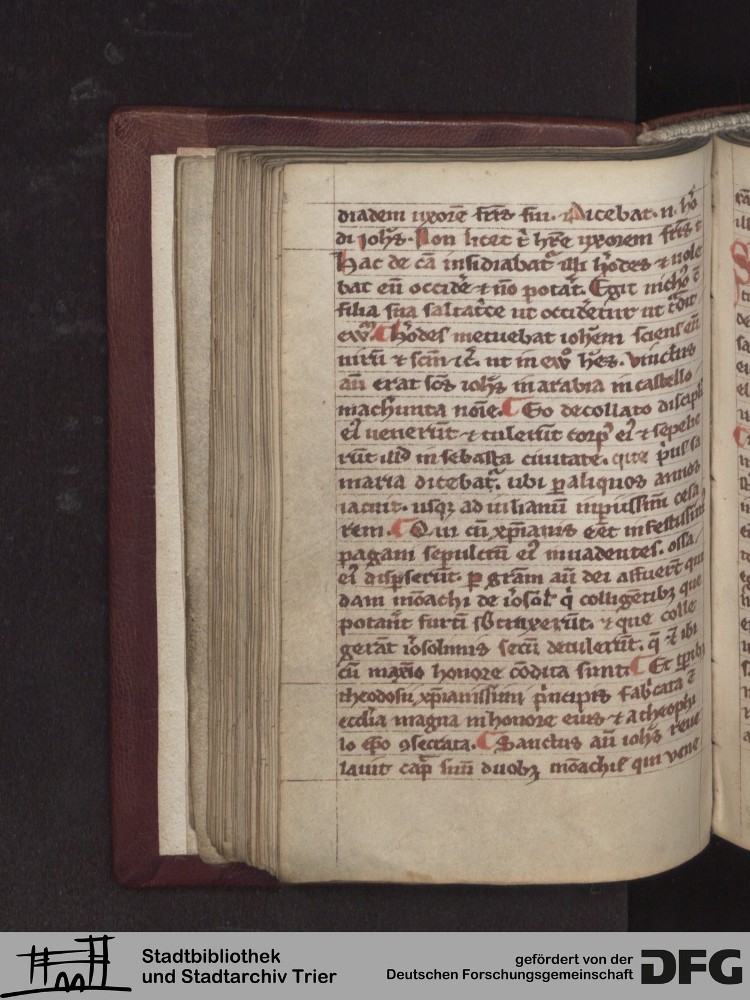 diadem uxorē frīs sui. Dicebat. n. h̓o
di ioh̄s. Non licet t̓ hr̄e uxorem fr̄is t̓
Hac de cā insidiabat᷑ illi h̓odes ⁊ uole
bat eū occide᷑ ⁊ nō potat᷑. Egit
filia sua saltat᷑ce ut occidetur ut
h̓odes metuebat ioh̄em sciens eū
uirū ⁊ sc̄m ut in hēs. Vinctus
aū erat sc̄s ioh̄s in arabia in castello
macherunta nōīe. Eo decollato discipli
ei᷒ uenerūt ⁊ tulerūt corp᷒ ei᷒ ⁊ sepelie
rūt illd in sebasta ciuitate. que p̓us sa
maria dicebat᷑. ubi ꝑ aliquos annos
iacuit. usqꝫ ad iulianū inpiissim̄ cesa
rem. Qui cū xp̄ianis eēt infestissim᷒
pagani sepulcrū ei᷒ inuadentes. ossa
ei᷒ disꝑserūt. ꝑ grām aū dei affuer̄t qui
dam mōachi de i᷒osol᷑ q̓ colligētibꝫ que
potant furtī sb̄tinxerūt. ⁊ que colle
gerāt i᷒osolimis secū detulerūt. q̄ ⁊ ibi
cū maxīo honore cōdita sunt. Et tp̄ribꝫ
theodosii xp̄ianissimi p̓ncipis fab̓cata ē
ecclīa magna in honore eius ⁊ a theophi
lo ep̄o ꝯsecrata. Sanctus aū ioh̄s reue
lauit cap̄ suū duobꝫ mōachis qui uene
Stadtbibliothek
und Stadtarchiv Trier
gefördert von der
Deutschen Forschungsgemeinschaft
DFG